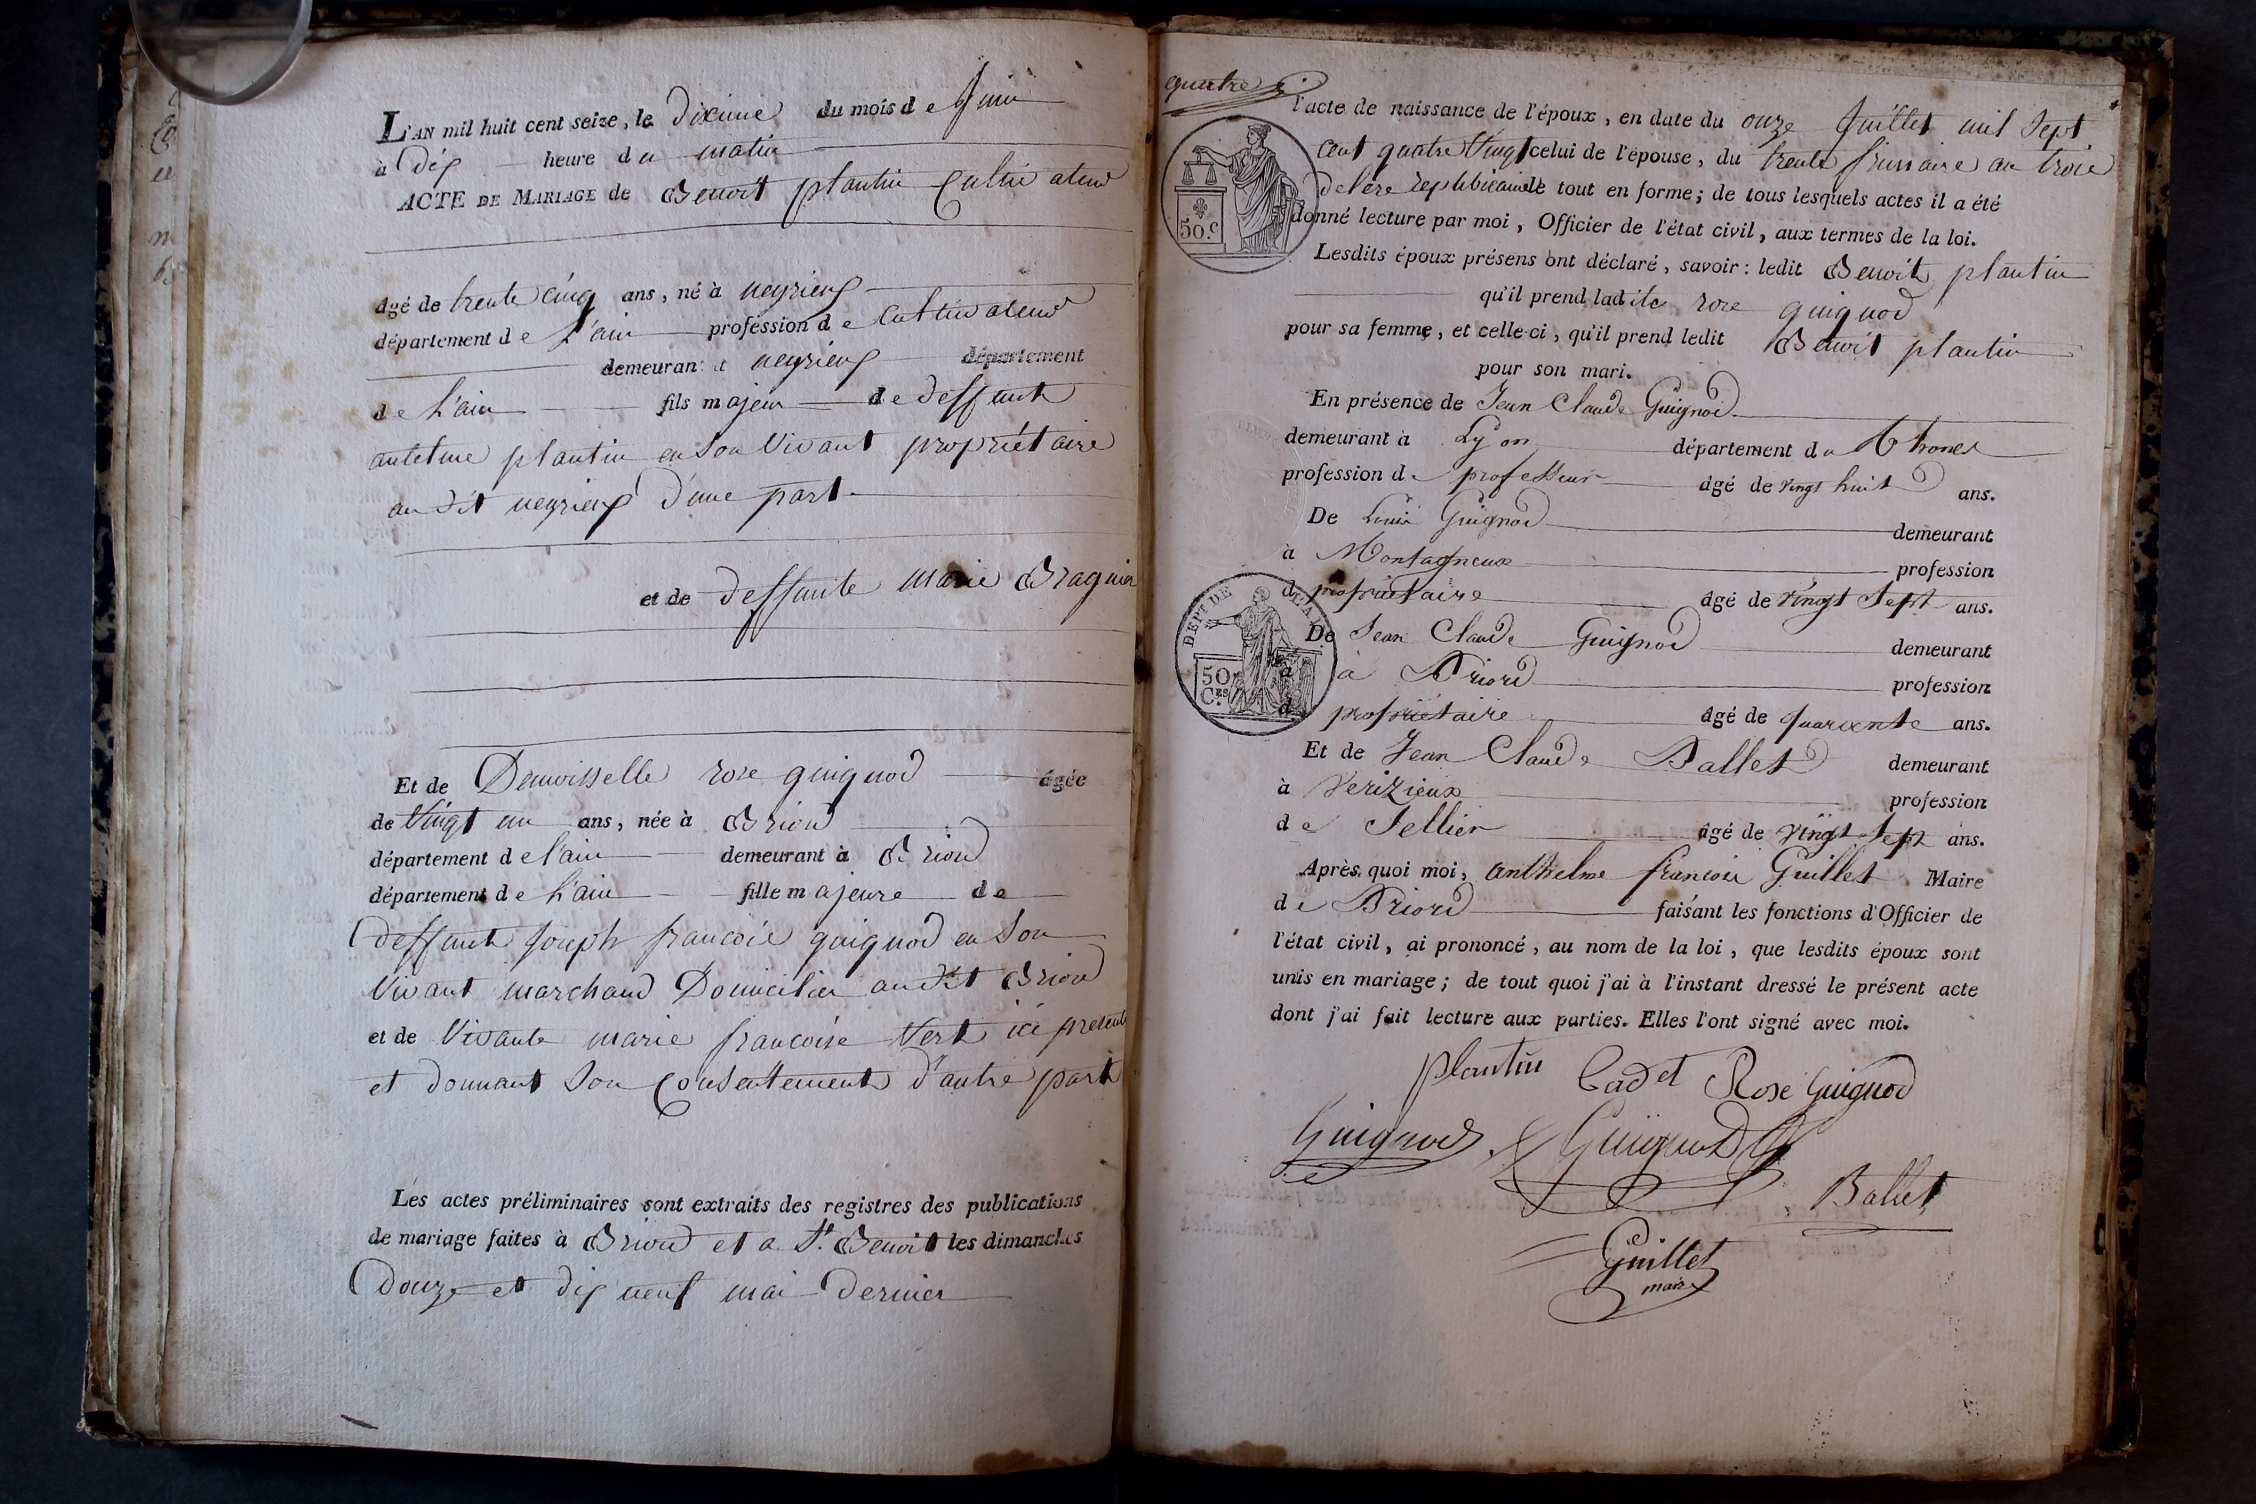 L'AN mil huit cent seize, le dixime du mois de Juin
à dix heure du matin
ACTE DE MARIAGE de Benoit plantin Cultivateur
âgé de trente cinq ans, né à neyrieux
département de l'ain profession de Cultivateur
demeurant à neyrieux département
de l'ain fils majeur de deffunt
antelme plantin en son Vivant propriétaire
au dit neyrieux d'une part
et de deffunte marie Bragnier
Et de Demoisselle rose guignod âgée
de Vingt un ans, née à Briord
département de l'ain demeurant à Briord
département de l'ain fille majeure de
deffunt joseph francois guignod en son
Vivant marchand Domicilier au dit Briord
et de Vivante marie francoise Vert ici presente
et donnant son Consentement d'autre part
Les actes préliminaires sont extraits des registres des publications
de mariage faites à Briord et a St. Benoit les dimanches
Douze et dix neuf mai dernier
quatre
l'acte de naissance de l'époux, en date du onze Juillet mil sept
cent quatre Vingt celui de l'épouse, du trente frimaire an trois
de l'ère republicaine le tout en forme; de tous lesquels actes il a été
donné lecture par moi, Officier de l'état civil, aux termes de la loi.
50.c
Lesdits époux présens ont déclaré, savoir: ledit Benoit plantin
qu'il prend ladite rose guignod
pour sa femme, et celle-ci, qu'il prend ledit Benoit plantin
pour son mari.
En présence de Jean Claude Guignod
demeurant à Lyon département du Rhone
profession de professeur âgé de vingt huit ans.
De Louis Guignod demeurant
à Montagneux profession
d propriétaire âgé de vingt sept ans.
DEPT DE L'AIN
De Jean Claude Guignod demeurant
50 Ces
à à Briord profession
d propriétaire âgé de quarante ans.
Et de Jean Claude Ballet demeurant
à Verizieux profession
de Sellier âgé de vingt sept ans.
Après quoi moi, anthelme francois Guillet Maire
de Briord faisant les fonctions d'Officier de
l'état civil, ai prononcé, au nom de la loi, que lesdits époux sont
unis en mariage; de tout quoi j'ai à l'instant dressé le présent acte
dont j'ai fait lecture aux parties. Elles l'ont signé avec moi.
plantin Cadet Rose Guignod
Guignod Guignod
Ballet
Guillet
maire